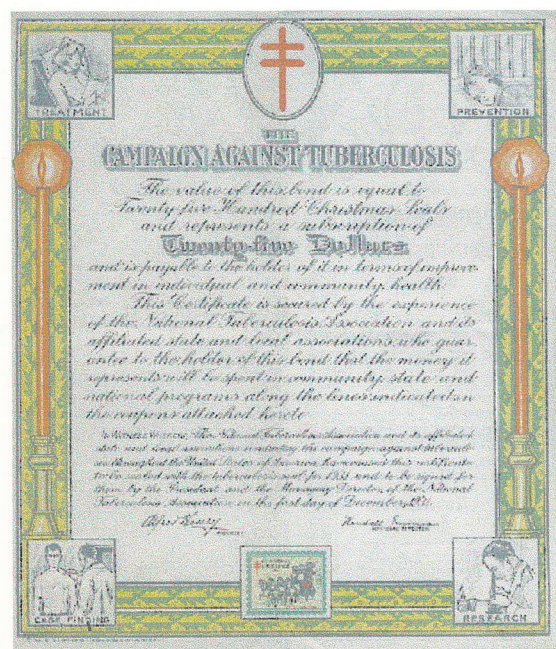 TREATMENT
PREVENTION
THE
CAMPAIGN AGAINST TUBERCULOSIS
The value of this bond is equal to
Twenty five Hundred Christmas Seals
and represents a subscription of
Twenty-five Dollars
and is payable to the holder of it in terms of improve-
ment in individual and community health
This Certificate is secured by the experience
of the National Tuberculosis Association and its
affiliated state and local associations who guar-
antee to the holder of this bond that the money it
represents will be spent in community, state and
national programs along the lines indicated in
the coupons attached hereto
In Witness Whereof, The National Tuberculosis Association and its affiliated
state and local associations conducting the campaign against tuberculo-
sis throughout the United States of America has caused this certificate
to be sealed with the tuberculosis seal for and to be signed for
them by the President and the Managing Director of the National
Tuberculosis Association on the first day of December
Alfred Henry
PRESIDENT
Kendall Emerson
MANAGING DIRECTOR
CASE FINDING
RESEARCH